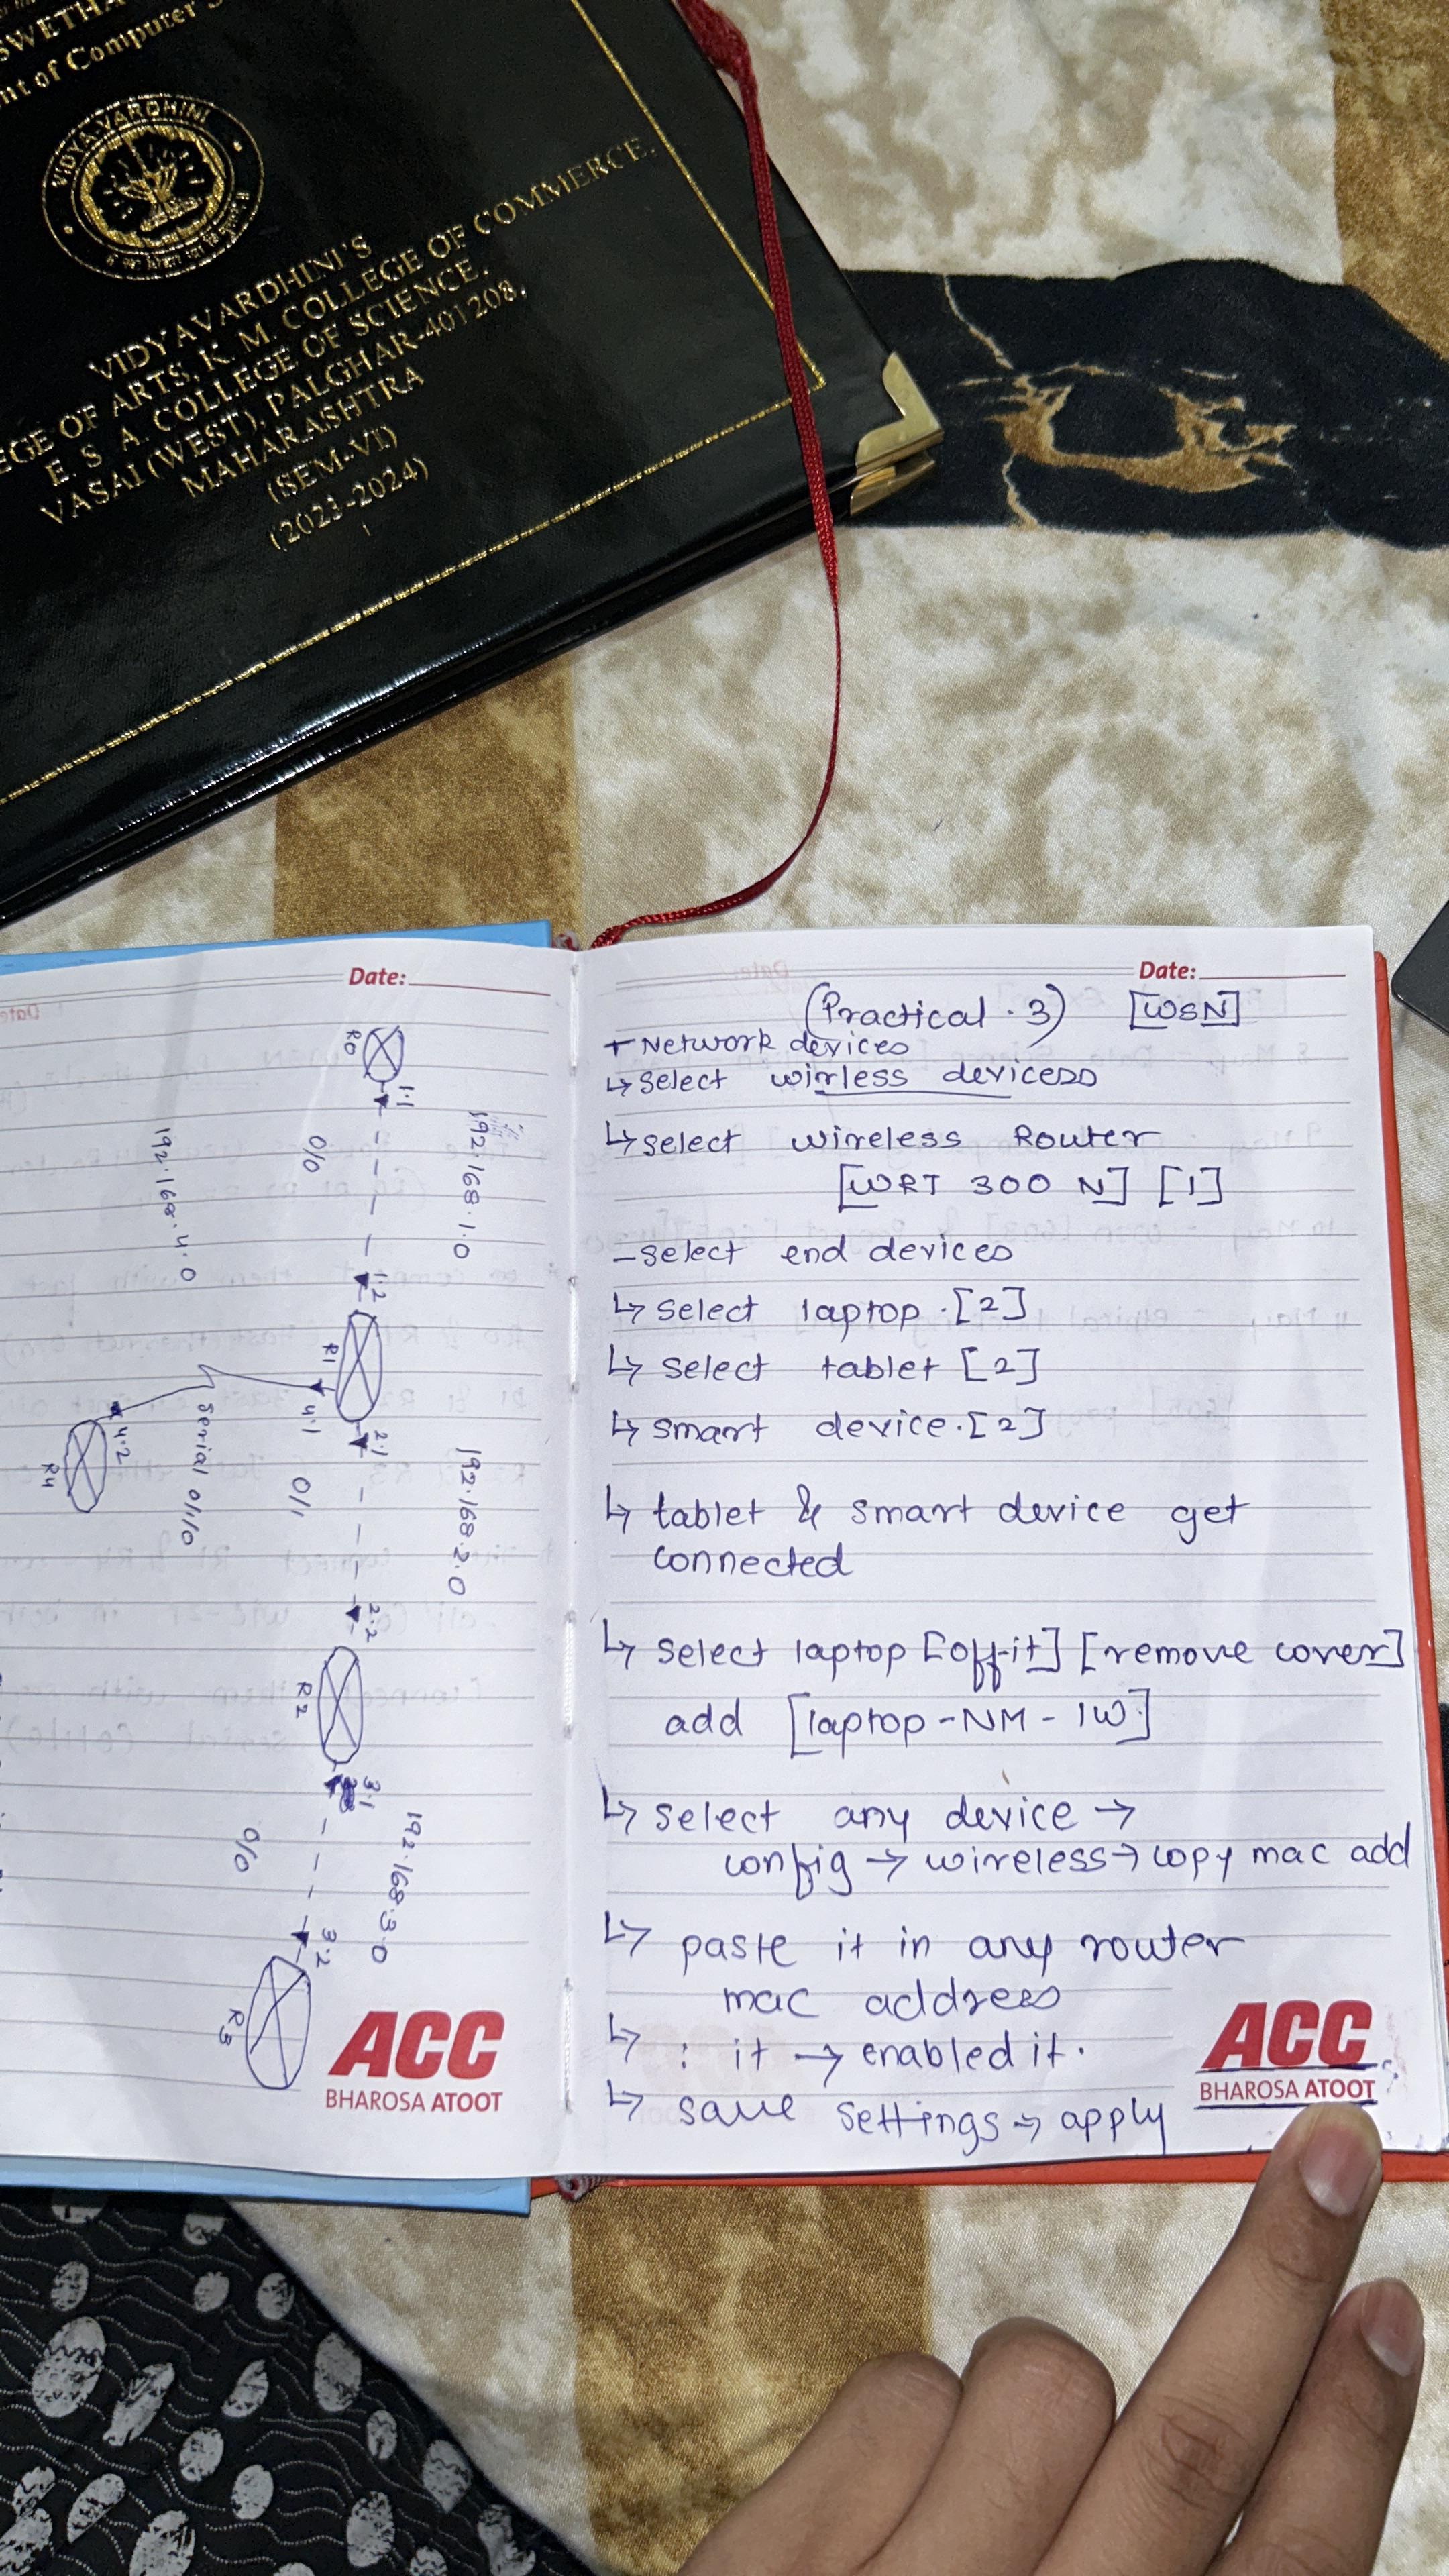 SWETHA
nt of Computer S
VIDYAVARDHINI
VIDYAVARDHINI'S
EGE OF ARTS, K. M. COLLEGE OF COMMERCE,
E. S. A. COLLEGE OF SCIENCE,
VASAI (WEST), PALGHAR-401208,
MAHARASHTRA
(SEM-VI)
(2023-2024)
Date:
R0
1.1
192.168.1.0
0/0
192.168.4.0
1.2
R1
4.1
2.1
4.2
R4
Serial 0/1/0
0/1
192.168.2.0
2.2
R2
3.1
192.168.3.0
0/0
3.2
R3
ACC
BHAROSA ATOOT
Date:
(Practical . 3) [WSN]
+ Network devices
↳ select wirless devices
↳ select wireless Router
[WRT 300 N] [1]
- select end devices
↳ select laptop .[2]
↳ select tablet [2]
↳ smart device.[2]
↳ tablet & smart device get
connected
↳ select laptop [off it] [remove cover]
add [laptop-NM-1W]
↳ select any device →
config → wireless → copy mac add
↳ paste it in any router
mac address
↳ : it → enabled it.
↳ save settings → apply
ACC
BHAROSA ATOOT